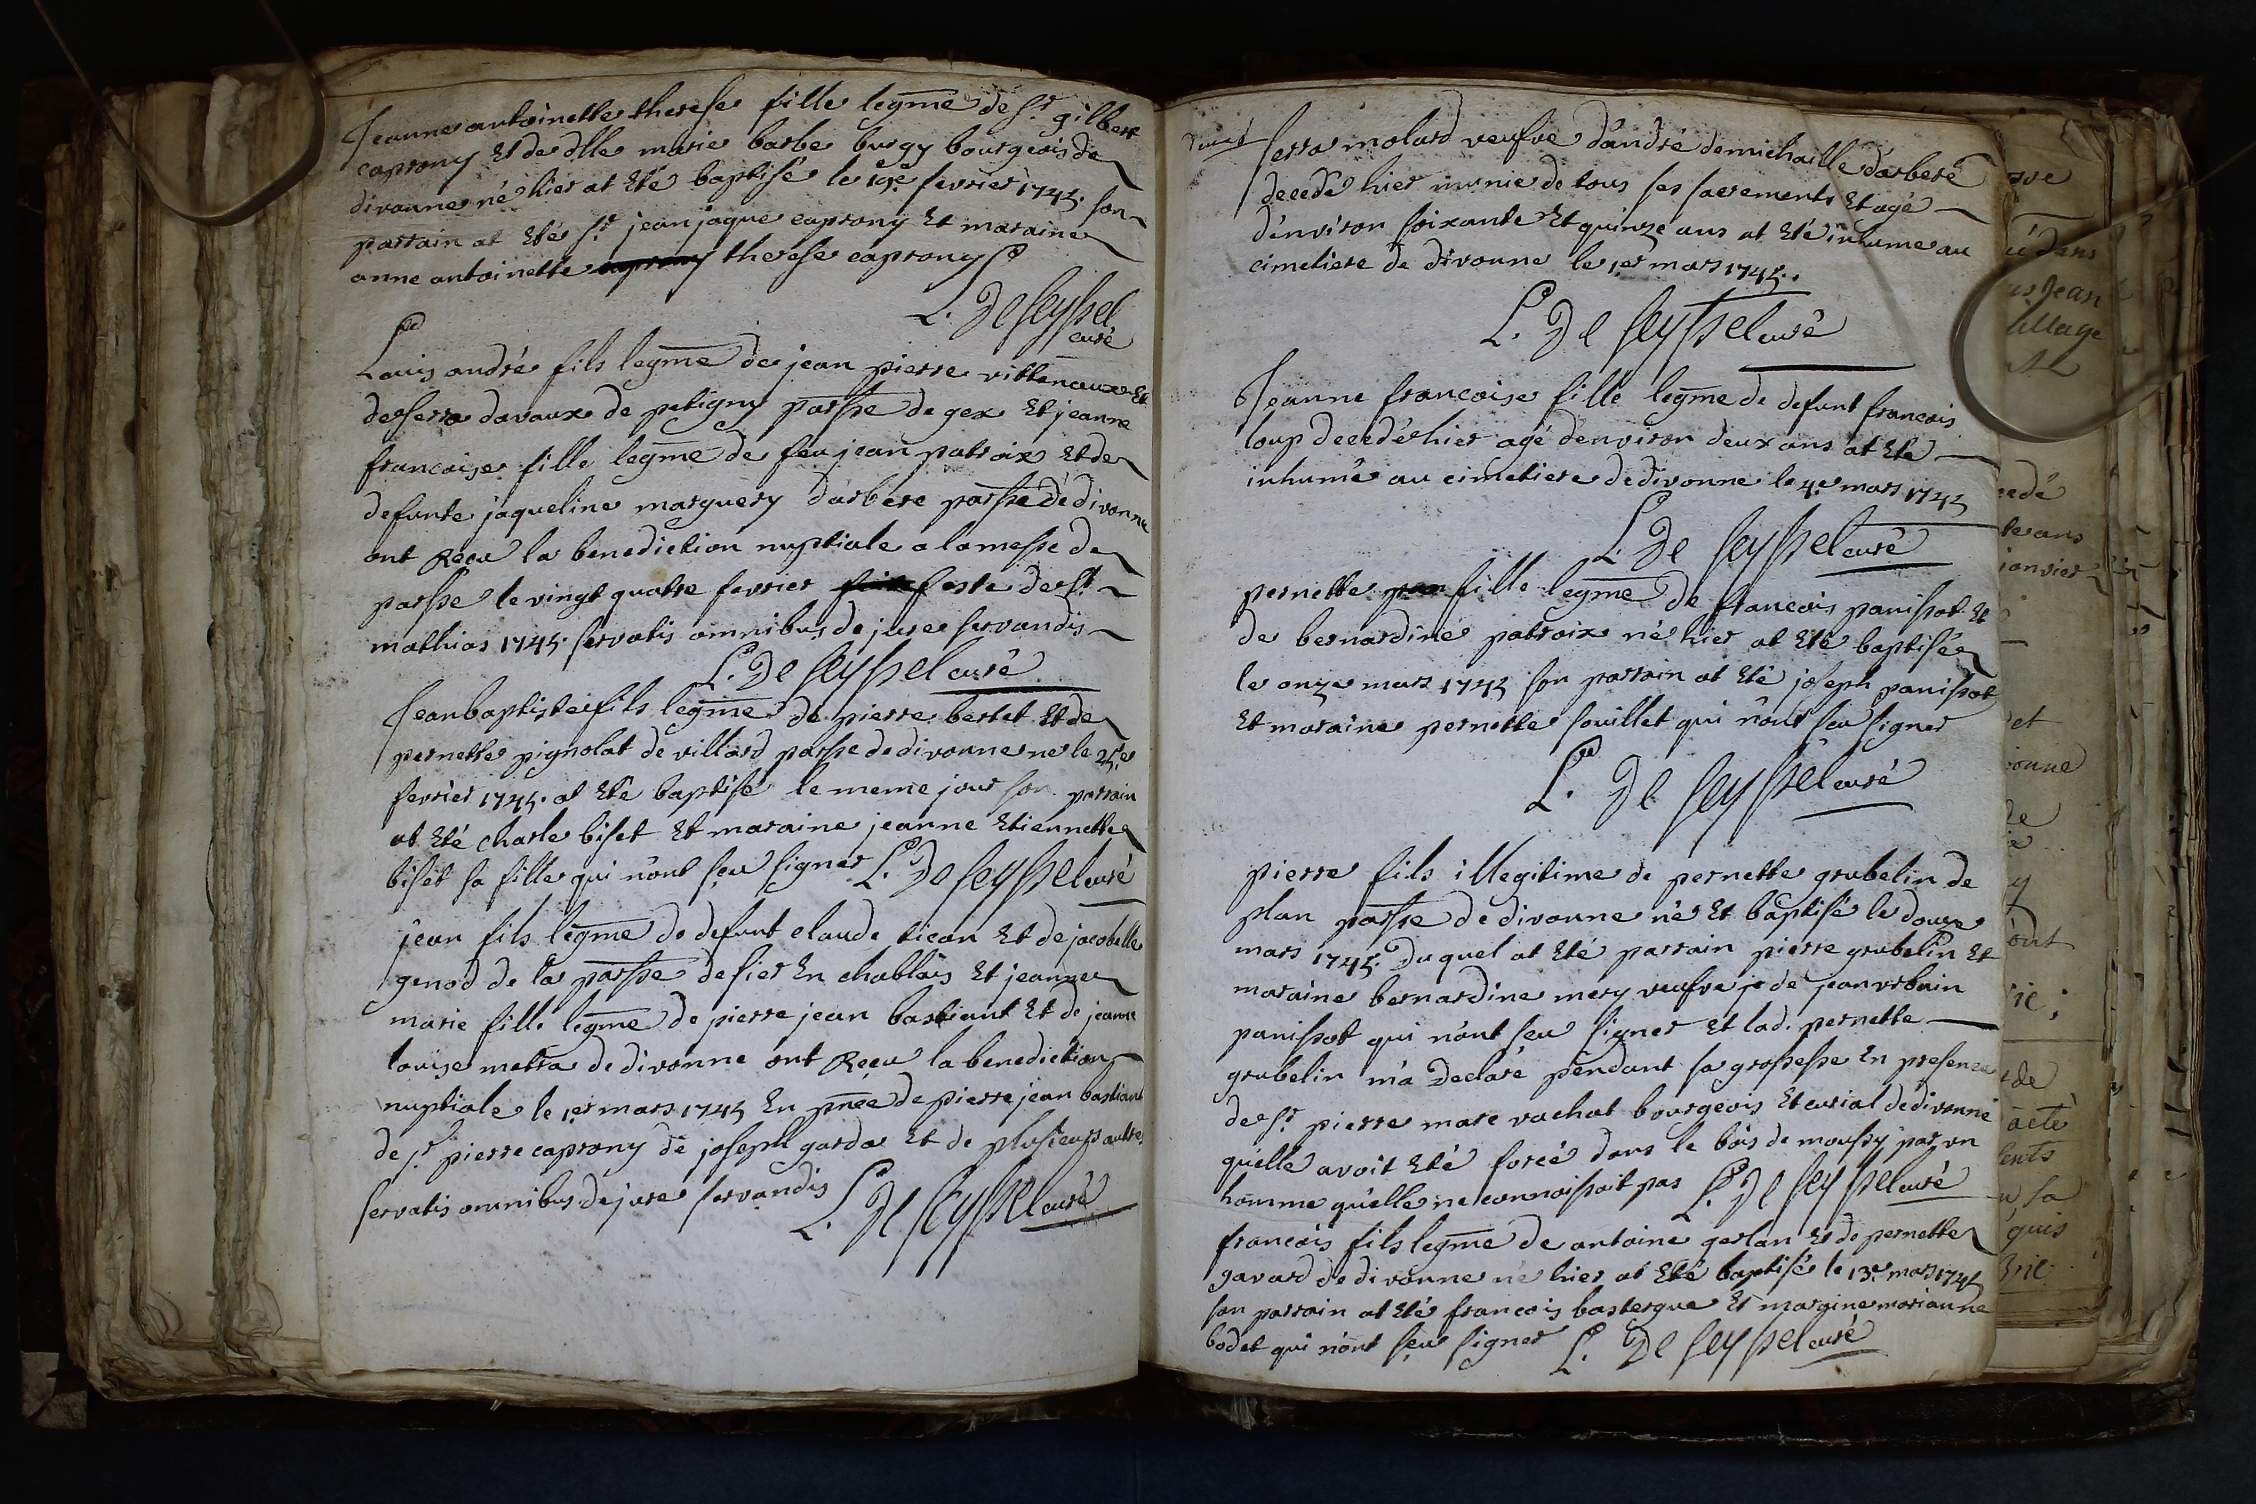 Jeanne antoinette therese fille legme de sr. gilbert
caprony Et de dlle marie barbe burgy bourgeois de
divonne né hier at Eté baptisé le 19e fevrier 1745. son
parrain at Eté sr. jean jaque caprony Et maraine
anne antoinette therese caprony
L. De seyssel
curé
Louis andré fils legme de jean pierre vittenaux Et
de serra davaux de petigny parsse de gex Et jeanne
francoise fille legme de feu jean patroix Et de
defunte jaqueline marguery d'arbere parsse de divonne
ont Recu la benediction nuptiale a la messe de
parsse le vingt quatre fevrier feste de st.
mathias 1745. servatis omnibus de jure servandis
L. De seyssel curé
Jean baptiste fils legme de pierre bertet Et de
pernette pignolat de villard parsse de divonne ne le 25e
fevrier 1745. at Eté baptisé le meme jour son parrain
at Eté charle biset Et maraine jeanne Etiennette
biset sa fille qui n'ont sçu signer L. De seyssel curé
jean fils legme de defunt claude tican Et de jacobelle
genod de la parsse de fier En chablais Et jeanne
marie fille legme de pierre jean bastiant Et de jeanne
louise metra de divonne ont Reçu la benediction
nuptiale le 1er mars 1745 En pnée de pierre jean bastiant
de sr. pierre caprony de joseph garda Et de plusieurs autres
servatis omnibus de jure servandis L. De seyssel curé
serra molard veufve d'andré demichaille d'arberé
decedé hier munie de tous ses sacrements Et agé
d'environ soixante Et quinze ans at Eté inhumé au
cimetiere de divonne le 1er mars 1745.
L. De seyssel curé
Jeanne francoise fille legme de defunt francois
loup decedé hier agé d'environ deux ans at Eté
inhumé au cimetiere de divonne le 4e mars 1745
L. De seyssel curé
pernette fille legme de francois panissot Et
de bernardine patroix né hier at Eté baptisée
le onze mars 1745 son parrain at Eté joseph panissot
Et maraine pernette souillet qui n'ont sçu signer
L. De seyssel curé
pierre fils illegitime de pernette grubelin de
plan parsse de divonne né Et baptisé le douze
mars 1745. Du quel at Eté parrain pierre grubelin Et
maraine bernardine mery veufve je de jean urbain
panissot qui n'ont sçu signer Et lad. pernette
grubelin m'a Declaré pendant sa grossesse En presence
de sr. pierre marc vachat bourgeois Et curial de divonne
qu'elle avoit Eté forcé dans le bois de moussy par un
homme qu'elle ne connoissoit pas L. De seyssel curé
francois fils legme de antoine gerlan Et de pernette
gavard de divonne né hier at Eté baptisé le 13e mars 1745
son parrain at Eté francois bastergue Et margine marianne
bodet qui n'ont sçu signer L. De seyssel curé